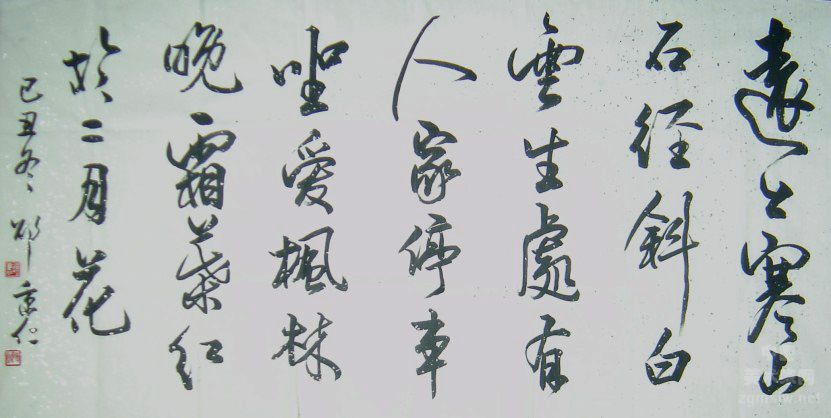 遠上寒山
石径斜白
雲生處有
人家停車
坐愛楓林
晚霜葉红
於二月花
己丑冬